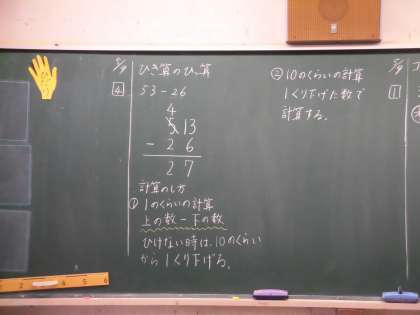 5/9
4
ひき算のひっ算
53-26
4
5 13
- 2 6
2 7
計算のし方
① 1のくらいの計算
上の数-下の数
ひけない時は、10のくらい
から1くり下げる。
② 10のくらいの計算
1くり下げた数で
計算する。
5/9
1